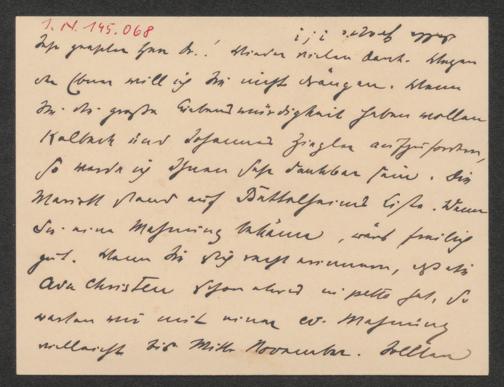 I. N. 145.068
Sehr geehrter Herr Dr.! Wieder vielen Dank. Wegen
der Ebner will ich Sie nicht drängen. Wenn
Sie die große Liebenswürdigkeit haben wollen
Kalbeck und Johannes Ziegler aufzufordern,
so werde ich Ihnen sehr dankbar sein. Die
Marriott stand auf Bettelheims Liste. Wenn
Sie eine Mahnung bekäme, wärs freilich
gut. Wenn Sie sich recht erinnern, daß die
Ada Christen schon etwas in petto hat, so
warten wir mit einer ev. Mahnung
vielleicht bis Mitte November. Sollten